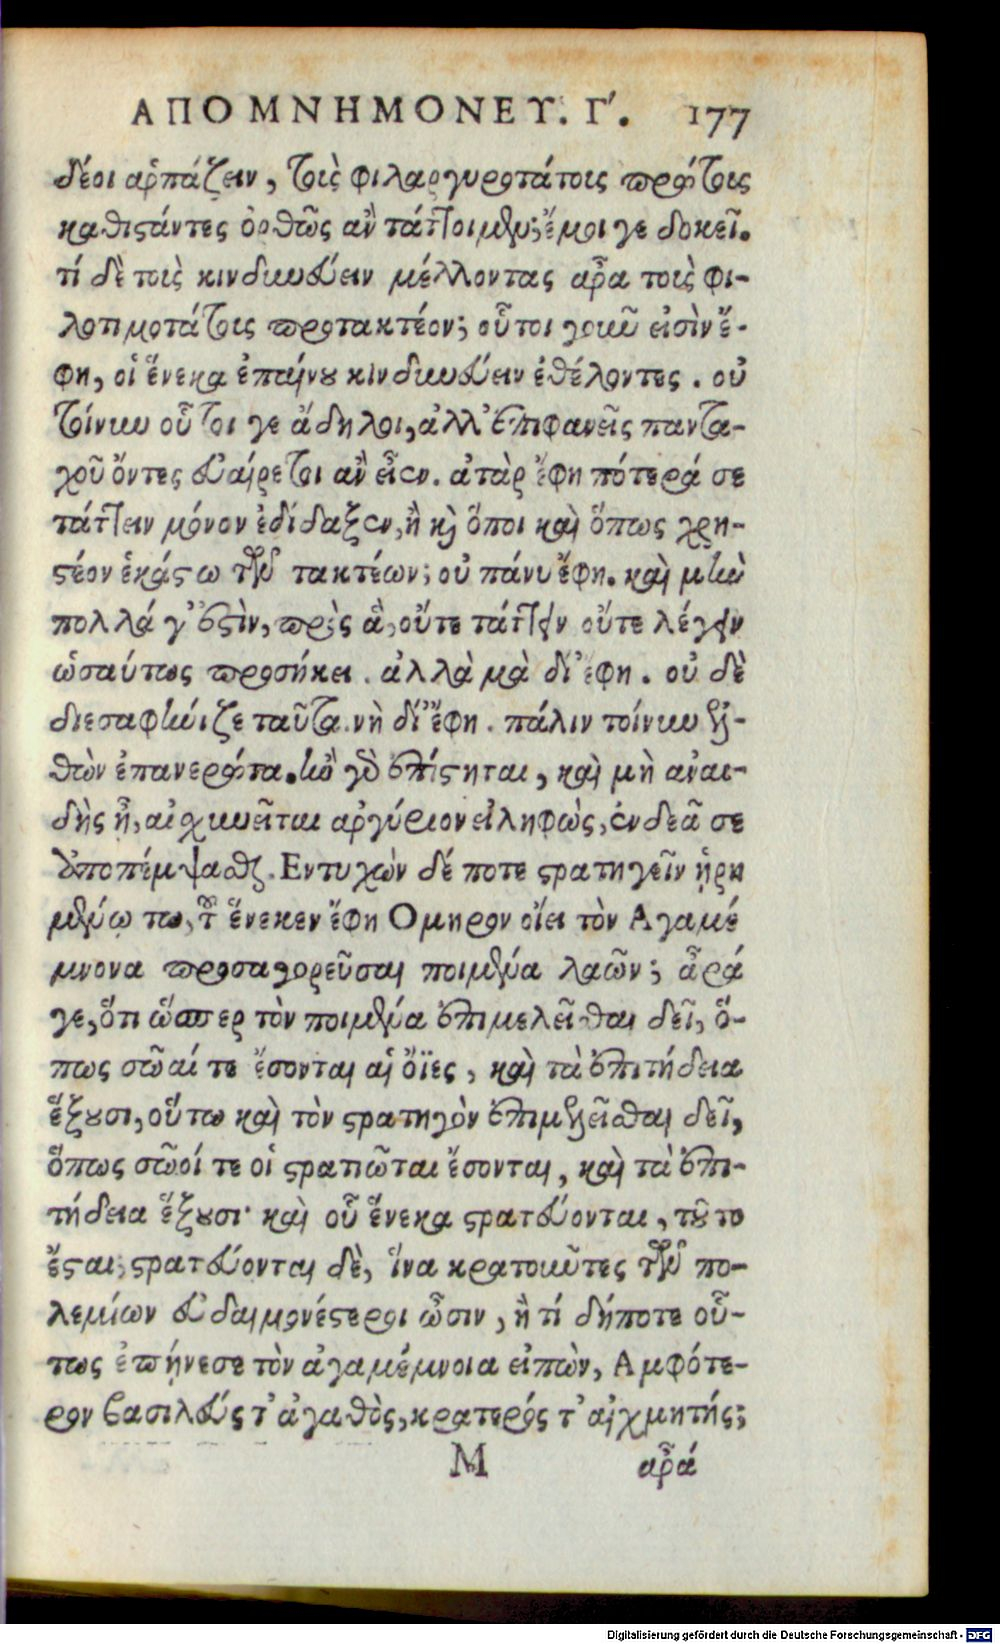 ΑΠΟΜΝΗΜΟΝΕΥ. Γ΄. 177
δέοι ἁρπάζειν, τοὺς φιλαργυρωτάτους πρώτους
καθιστάντες ὀρθῶς ἂν τάττοιμεν; ἔμοι γε δοκεῖ.
τί δὲ τοὺς κινδυνεύειν μέλλοντας ἆρα τοὺς φι-
λοτιμοτάτους προτακτέον; οὗτοι γοῦν εἰσὶν ἔ-
φη, οἱ ἕνεκα ἐπαίνου κινδυνεύειν ἐθέλοντες. οὐ
τοίνυν οὗτοι γε ἄδηλοι, ἀλλ' ἐπιφανεῖς παντα-
χοῦ ὄντες εὐαίρετοι ἂν εἶεν. ἀτὰρ ἔφη πότερά σε
τάττειν μόνον ἐδίδαξεν, ἢ καὶ ὅποι καὶ ὅπως χρη-
στέον ἑκάστω τῶν τακτέων; οὐ πάνυ ἔφη. καὶ μὴν
πολλά γ' ἐστὶν, πρὸς ἃ, οὔτε τάττειν οὔτε λέγειν
ὡσαύτως προσήκει. ἀλλὰ μὰ δί' ἔφη. οὐ δὲ
διεσαφήνιζε ταῦτα. νὴ δί' ἔφη. πάλιν τοίνυν ἐλ-
θὼν ἐπανερώτα. ἢν γὰρ ἐπίστηται, καὶ μὴ ἀναι-
δὴς ᾖ, αἰσχυνεῖται ἀργύριον εἰληφὼς, ἐνδεᾶ σε
ἀποπέμψασθαι. Εντυχὼν δέ ποτε στρατηγεῖν ᾑρη
μένῳ τω, τοῦ ἕνεκεν ἔφη Ομηρον οἴει τὸν Αγαμέ
μνονα προσαγορεῦσαι ποιμένα λαῶν; ἆρά
γε, ὅτι ὥσπερ τὸν ποιμένα ἐπιμελεῖσθαι δεῖ, ὅ-
πως σῶαί τε ἔσονται αἱ ὄϊες, καὶ τὰ ἐπιτήδεια
ἕξουσι, οὕτω καὶ τὸν στρατηγὸν ἐπιμελεῖσθαι δεῖ,
ὅπως σῶοί τε οἱ στρατιῶται ἔσονται, καὶ τὰ ἐπι-
τήδεια ἕξουσι· καὶ οὗ ἕνεκα στρατεύονται, τοῦτο
ἔσται; στρατεύονται δὲ, ἵνα κρατοῦντες τῶν πο-
λεμίων εὐδαιμονέστεροι ὦσιν, ἢ τί δήποτε οὕ-
τως ἐπῄνεσε τὸν ἀγαμέμνοια εἰπὼν, Αμφότε-
ρον βασιλεύς τ' ἀγαθὸς, κρατερός τ' αἰχμητής;
Μ ἆρά
Digitalisierung gefördert durch die Deutsche Forschungsgemeinschaft - DFG